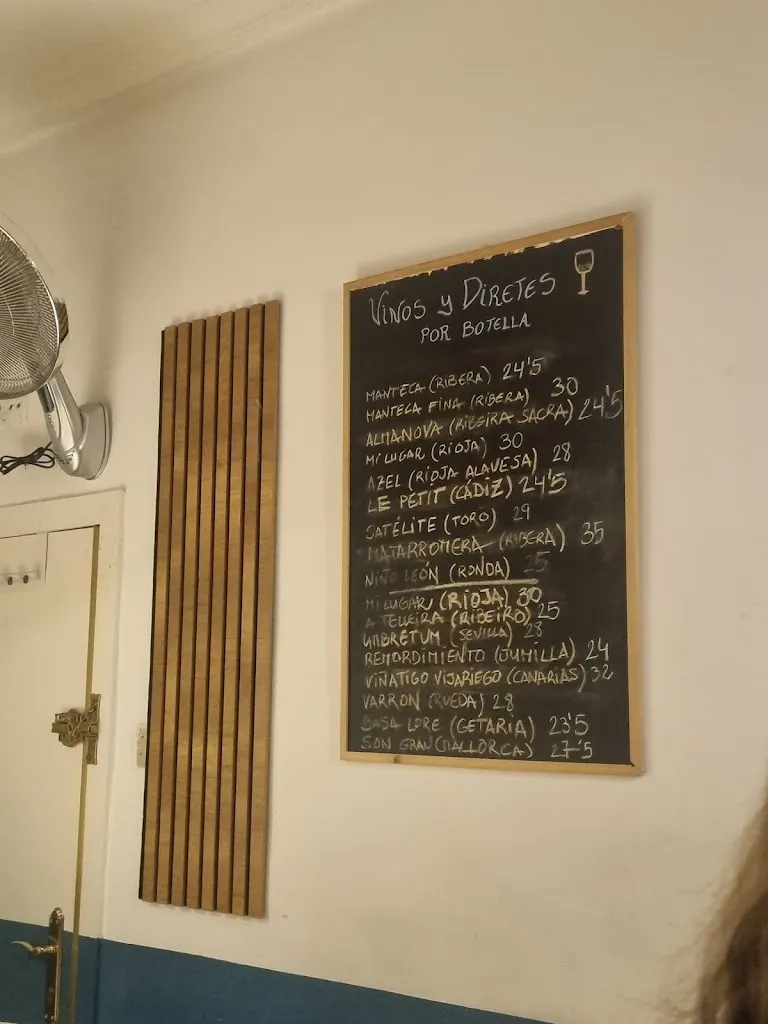 VINOS y DIRETES
POR BOTELLA
MANTECA (RIBERA) 24'5
MANTECA FINA (RIBERA) 30
ALMANOVA (RIBEIRA SACRA) 24'5
MI LUGAR (RIOJA) 30
AZEL (RIOJA ALAVESA) 28
LE PETIT (CÁDIZ) 24'5
SATÉLITE (TORO) 29
MATARROMERA (RIBERA) 35
NIÑO LEÓN (RONDA) 25
MI LUGAR (RIOJA) 30
A TELLEIRA (RIBEIRO) 25
UMBRETUM (SEVILLA) 28
REMORDIMIENTO (JUMILLA) 24
VIÑATIGO VIJARIEGO (CANARIAS) 32
VARRON (RUEDA) 28
BASA LORE (GETARIA) 23'5
SON GRAU (MALLORCA) 27'5